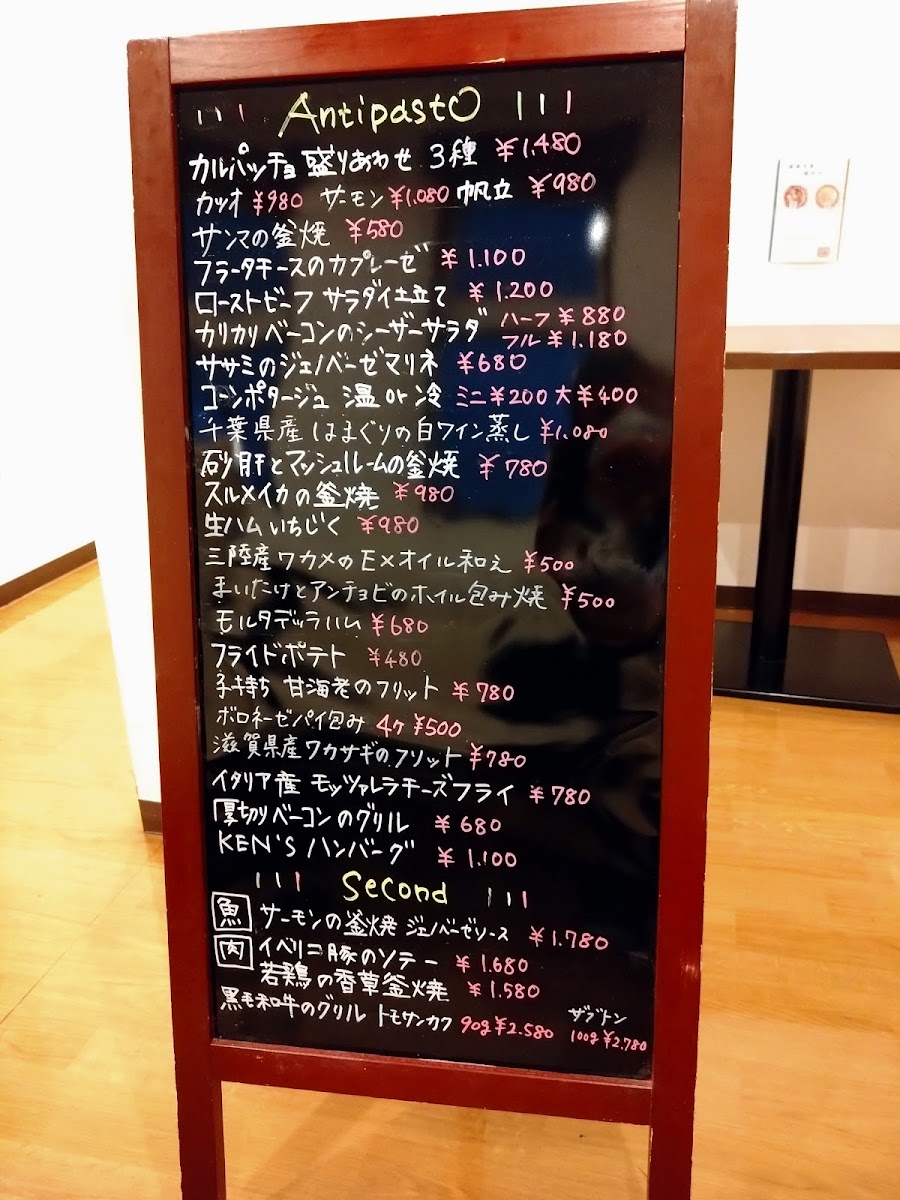 Antipasto
カルパッチョ 盛りあわせ 3種 ¥1.480
カツオ ¥980 サーモン ¥1.080 帆立 ¥980
サンマの釜焼 ¥580
ブラータチーズのカプレーゼ ¥1.100
ローストビーフ サラダ仕立て ¥1.200
カリカリベーコンのシーザーサラダ ハーフ ¥880
フル ¥1.180
ササミのジェノベーゼマリネ ¥680
コーンポタージュ 温 or 冷 ミニ¥200 大¥400
千葉県産 はまぐりの白ワイン蒸し ¥1.080
砂肝とマッシュルームの釜焼 ¥780
スルメイカの釜焼 ¥980
生ハムいちじく ¥980
三陸産ワカメのE×オイル和え ¥500
まいたけとアンチョビのホイル包み焼 ¥500
モルタデッラハム ¥680
フライドポテト ¥480
子持ち 甘海老のフリット ¥780
ボロネーゼパイ包み 4ケ ¥500
滋賀県産ワカサギのフリット ¥780
イタリア産 モッツァレラチーズフライ ¥780
厚切りベーコンのグリル ¥680
KEN'S ハンバーグ ¥1.100
Second
魚 サーモンの釜焼 ジェノベーゼソース ¥1.780
肉 イベリコ豚のソテー ¥1.680
若鶏の香草釜焼 ¥1.580
黒毛和牛のグリル トモサンカク 90g ¥2.580
ザブトン
100g ¥2.780